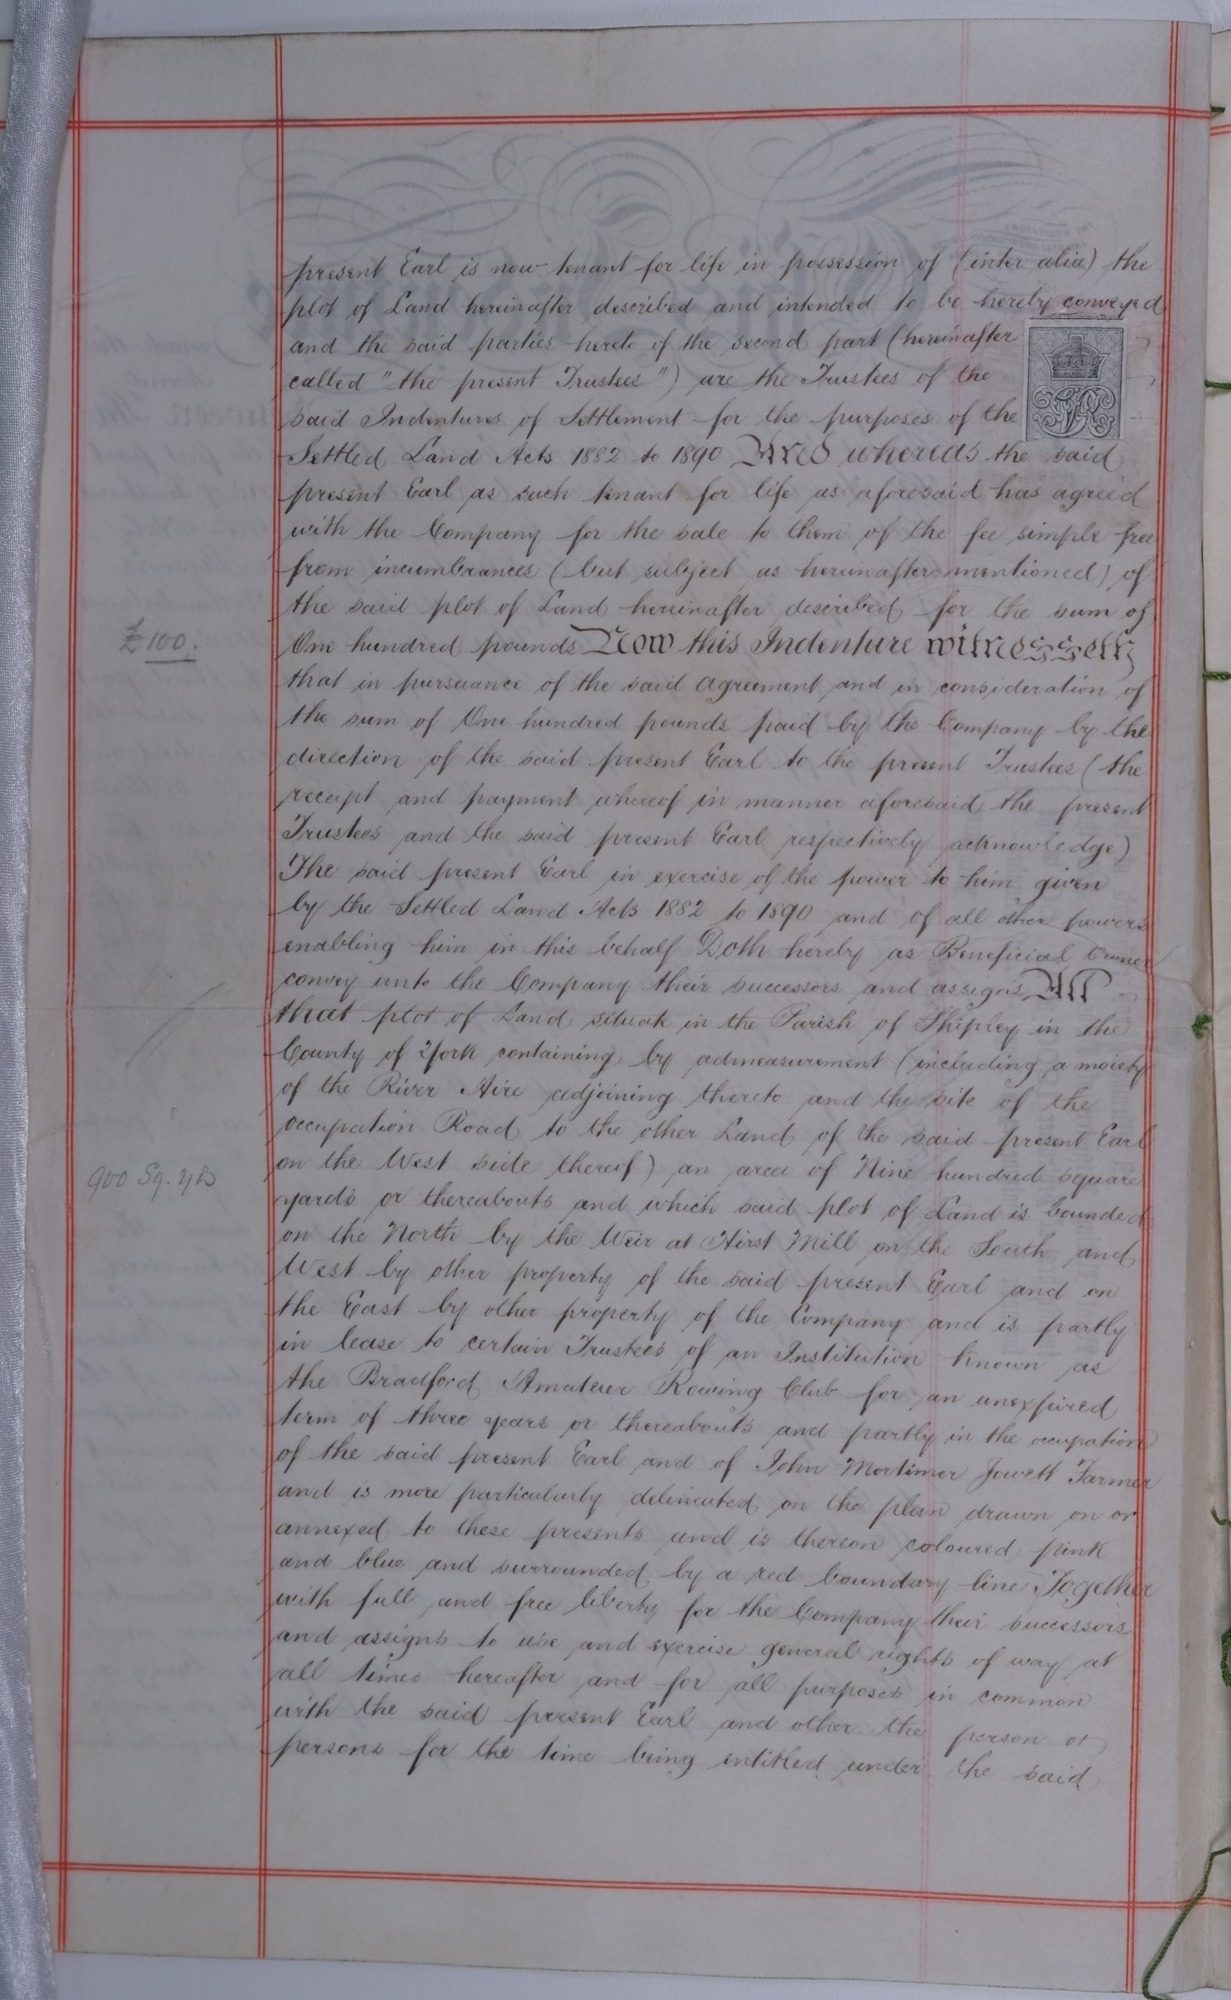 present Earl is now tenant for life in possession of (inter alia) the
plot of Land hereinafter described and intended to be hereby conveyed
and the said parties hereto of the second part (hereinafter
called "the present Trustees") are the Trustees of the
said Indentures of Settlement for the purposes of the
Settled Land Acts 1882 to 1890 And whereas the said
present Earl as such tenant for life as aforesaid has agreed
with the Company for the sale to them of the fee simple free
from incumbrances (but subject as hereinafter mentioned) of
the said plot of Land hereinafter described for the sum of
£100.
One hundred pounds Now this Indenture witnesseth
that in pursuance of the said Agreement and in consideration of
the sum of One hundred pounds paid by the Company by the
direction of the said present Earl to the present Trustees (the
receipt and payment whereof in manner aforesaid the present
Trustees and the said present Earl respectively acknowledge)
The said present Earl in exercise of the power to him given
by the Settled Land Acts 1882 to 1890 and of all other powers
enabling him in this behalf Doth hereby as Beneficial Owner
convey unto the Company their successors and assigns All
that plot of Land situate in the Parish of Shipley in the
County of York containing by admeasurement (including a moiety
of the River Aire adjoining thereto and the site of the
occupation Road to the other Land of the said present Earl
on the West side thereof) an area of Nine hundred square
900 Sq. yds
yards or thereabouts and which said plot of Land is bounded
on the North by the Weir at Hirst Mill on the South and
West by other property of the said present Earl and on
the East by other property of the Company and is partly
in lease to certain Trustees of an Institution known as
the Bradford Amateur Rowing Club for an unexpired
term of three years or thereabouts and partly in the occupation
of the said present Earl and of John Mortimer Jowett Farmer
and is more particularly delineated on the plan drawn on or
annexed to these presents and is thereon coloured pink
and blue and surrounded by a red boundary line Together
with full and free liberty for the Company their successors
and assigns to use and exercise general rights of way at
all times hereafter and for all purposes in common
with the said present Earl and other the person or
persons for the time being entitled under the said